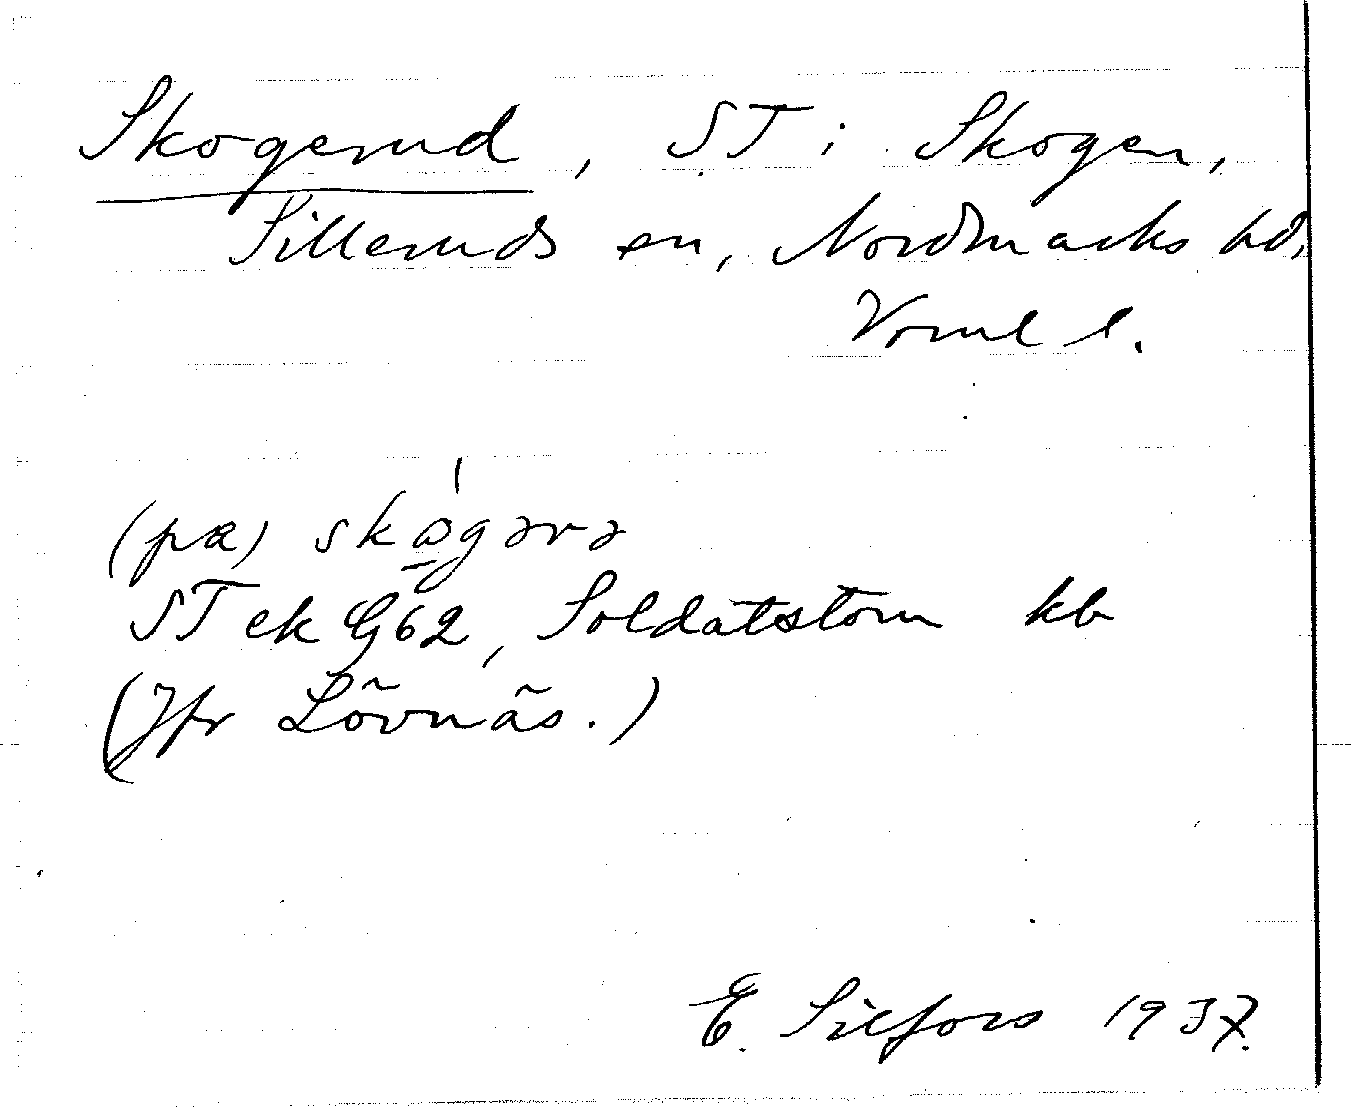 Skogerud, ST i Skogen,
Silleruds sn, Nordmarks hd,
Vrml l.
(pæ) skǫgərə
ST ek G62, Soldatstom kb
(Jfr Lövnäs.)
E. Silfors 1937.